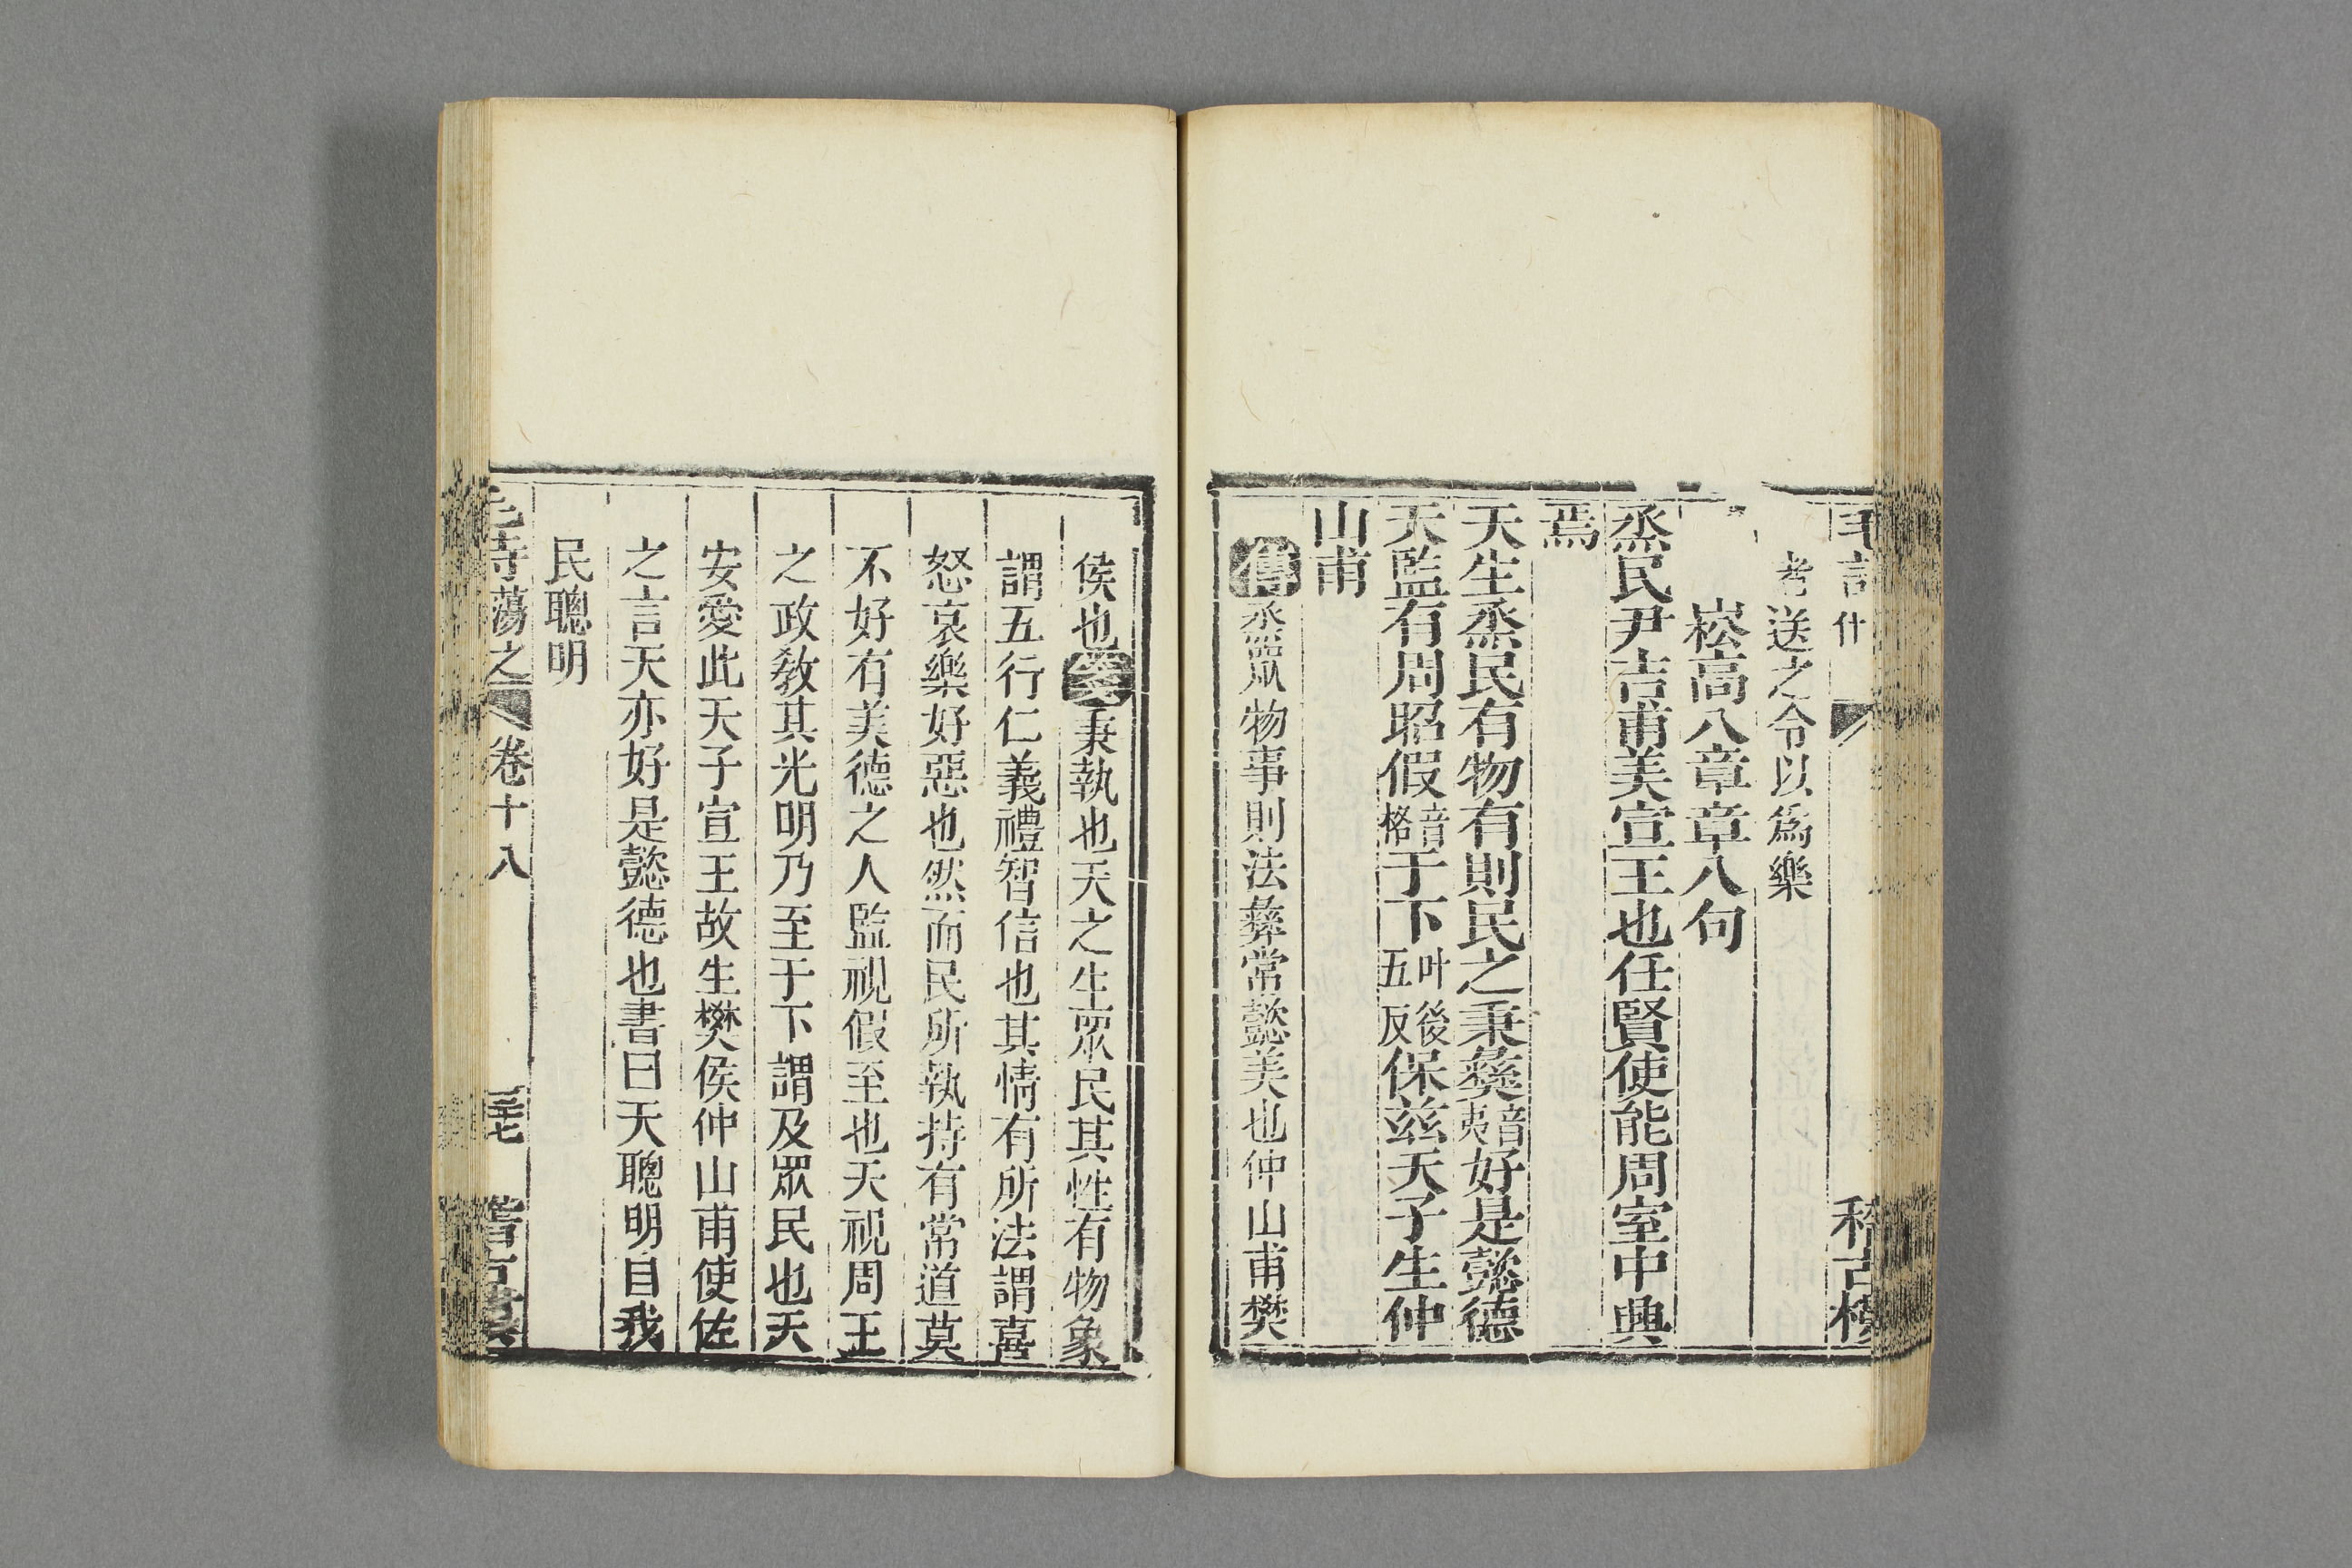 者送之令以爲樂
崧高八章章八句
烝民尹吉甫美宣王也任賢使能周室中興
焉
天生烝民有物有則民之秉彝音夷好是懿德
天監有周昭假音格于下叶後五反保兹天子生仲
山甫
傳烝衆物事則法彝常懿美也仲山甫樊
侯也箋秉執也天之生衆民其性有物象
謂五行仁義禮智信也其情有所法謂喜
怒哀樂好惡也然而民所執持有常道莫
不好有美德之人監視假至也天視周王
之政敎其光明乃至于下謂及衆民也天
安愛此天子宣王故生樊侯仲山甫使佐
之言天亦好是懿德也書曰天聰明自我
民聰明
毛詩蕩之 卷十八 三十七